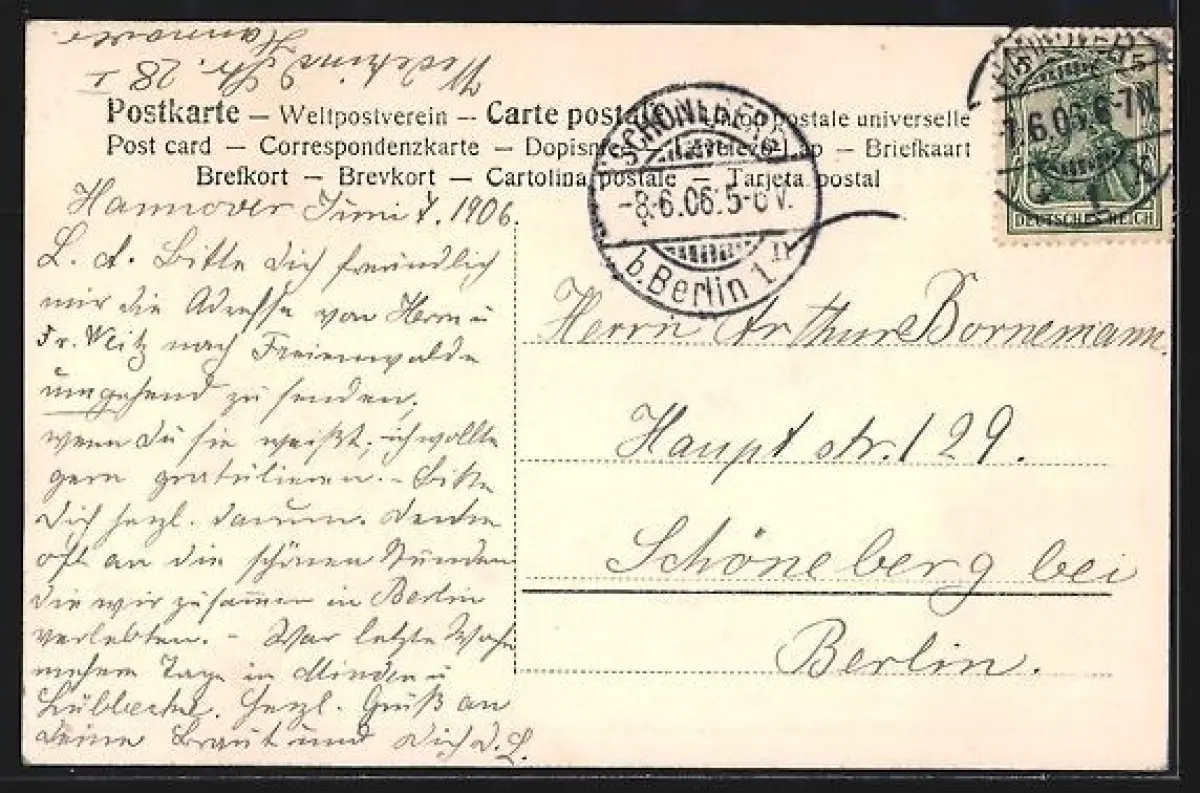 Wedekind Str. 28 I
Hannover
Postkarte – Weltpostverein – Carte postale – Union postale universelle
Post card – Correspondenzkarte – Dopisnice – Levelező-Lap – Briefkaart
Brefkort – Brevkort – Cartolina postale – Tarjeta postal
SCHÖNEBERG
-8.6.06.5-6V.
b. Berlin 1.
HANNOVER
7.6.06.6-7N.
5 5
DEUTSCHES REICH
Hannover Juni 7. 1906.
L. A. Bitte dich freundlich
mir die Adresse von Herrn u
Fr. Weitz nach Freienwalde
umgehend zu senden,
wenn du sie weißt, ich wollte
gern gratulieren. – Bitte
dich herzl. darum. Denke
oft an die schönen Stunden
die wir zusammen in Berlin
verlebten. – War letzte Woche
mehere Tage in Minden u
Lübbecke. Herzl. Gruß an
deine Braut und dich d. L.
Herrn Arthur Bornemann.
Hauptstr. 129.
Schöneberg bei
Berlin.